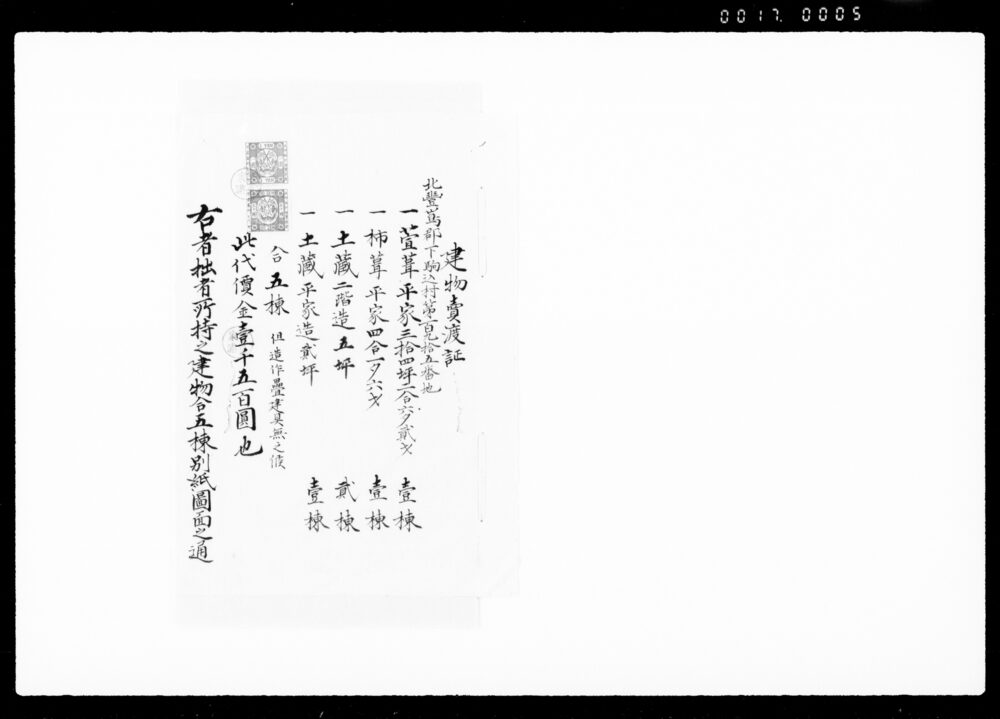 0017 0005
建物賣渡証
北豐嶌郡下駒込村第百九拾五番地
一萱葺平家三拾四坪二合六夕貳才 壹棟
一柿葺平家四合一夕六才 壹棟
一土藏二階造五坪 貳棟
一土藏平家造貳坪 壹棟
合五棟 但造作疊建具無之候
此代價金壹千五百圓也
右者拙者所持之建物合五棟別紙圖面之通